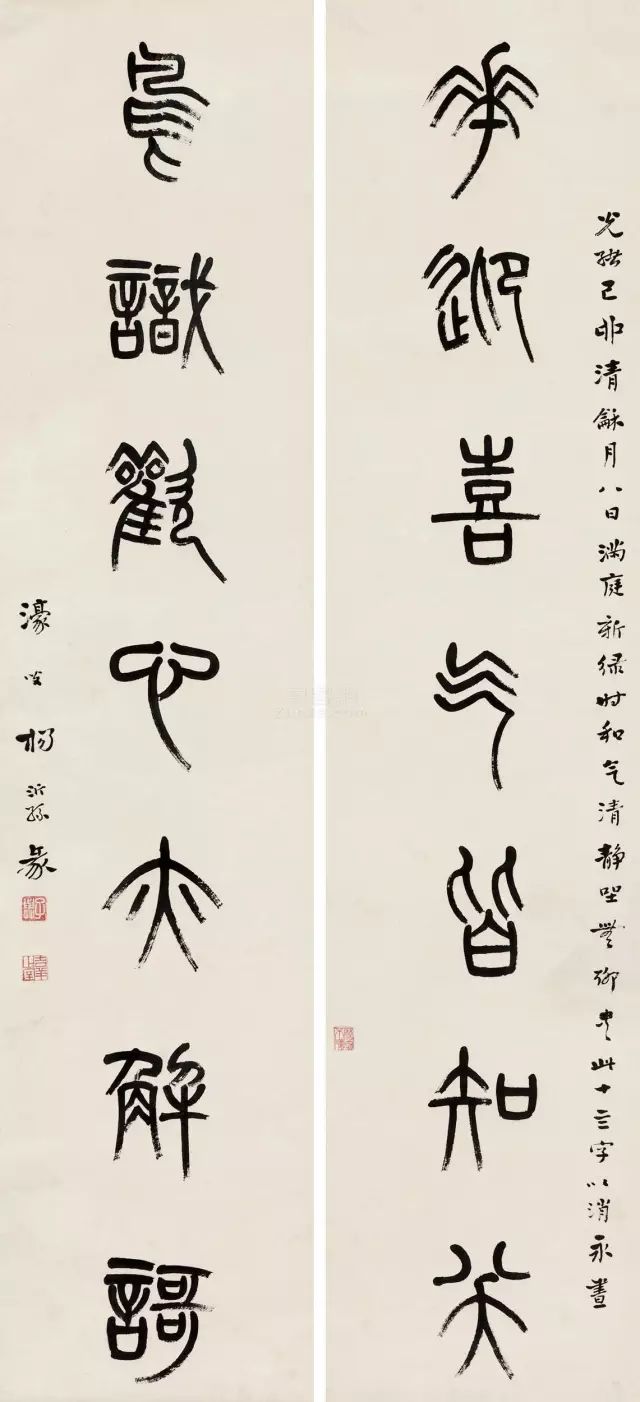 華迎喜气皆知笑
光緒己卯清龢月八日滿庭新緑時和气清靜坐無聊書此十亖字以消永晝
鳥識歡心亦解謌
濠叟楊沂孫篆